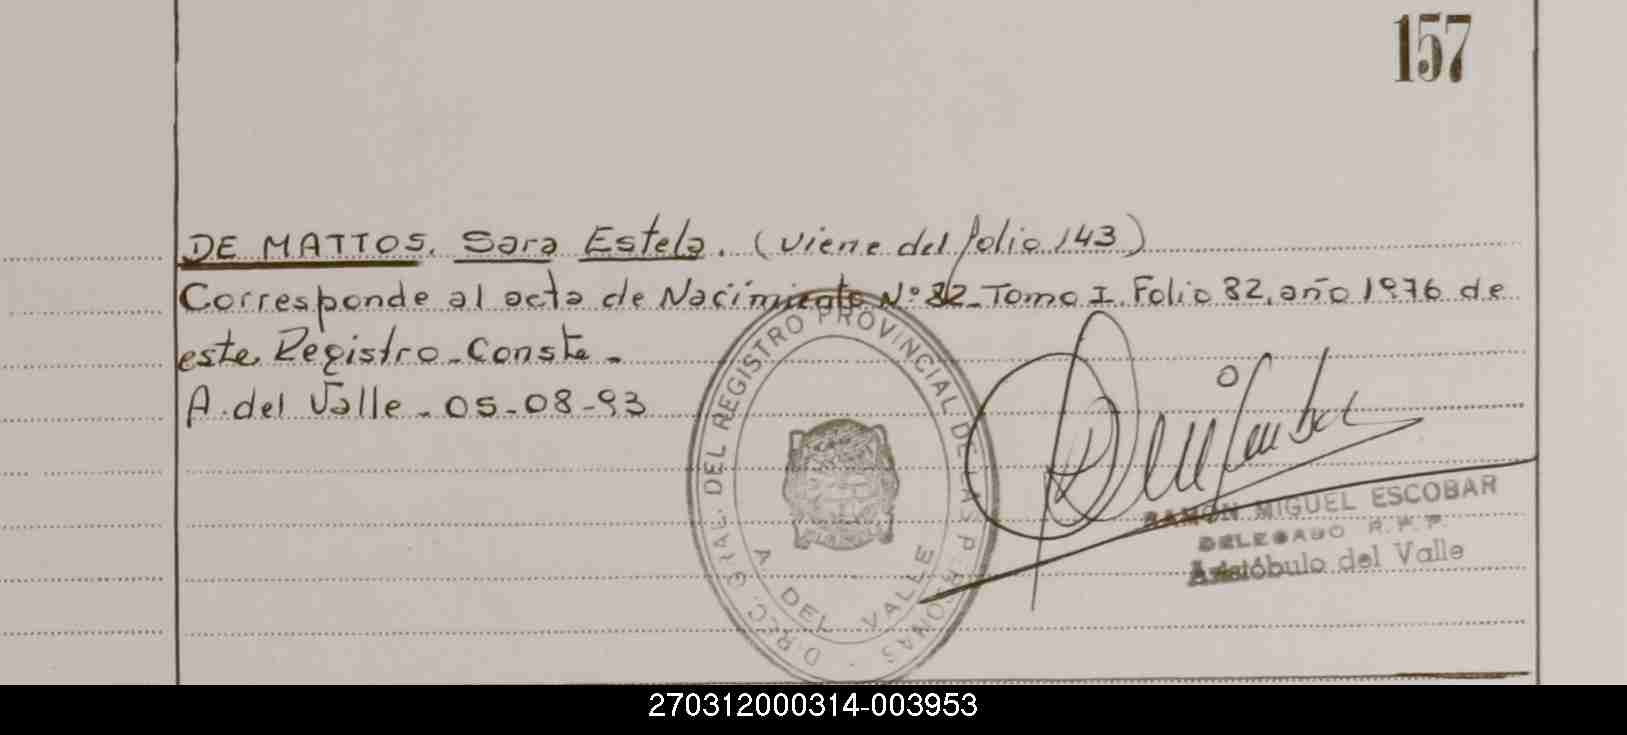 157
DE MATTOS, Sara Estela. (Viene del folio 143)
Corresponde al acta de Nacimiento Nº 82 - Tomo I. Folio 82, año 1976 de
este Registro - Conste -
A. del Valle - 05-08-93
DIREC. GRAL. DEL REGISTRO PROVINCIAL DE LAS PERSONAS
A DEL VALLE
RAMÓN MIGUEL ESCOBAR
DELEGADO R.P.P.
Aristóbulo del Valle
270312000314-003953